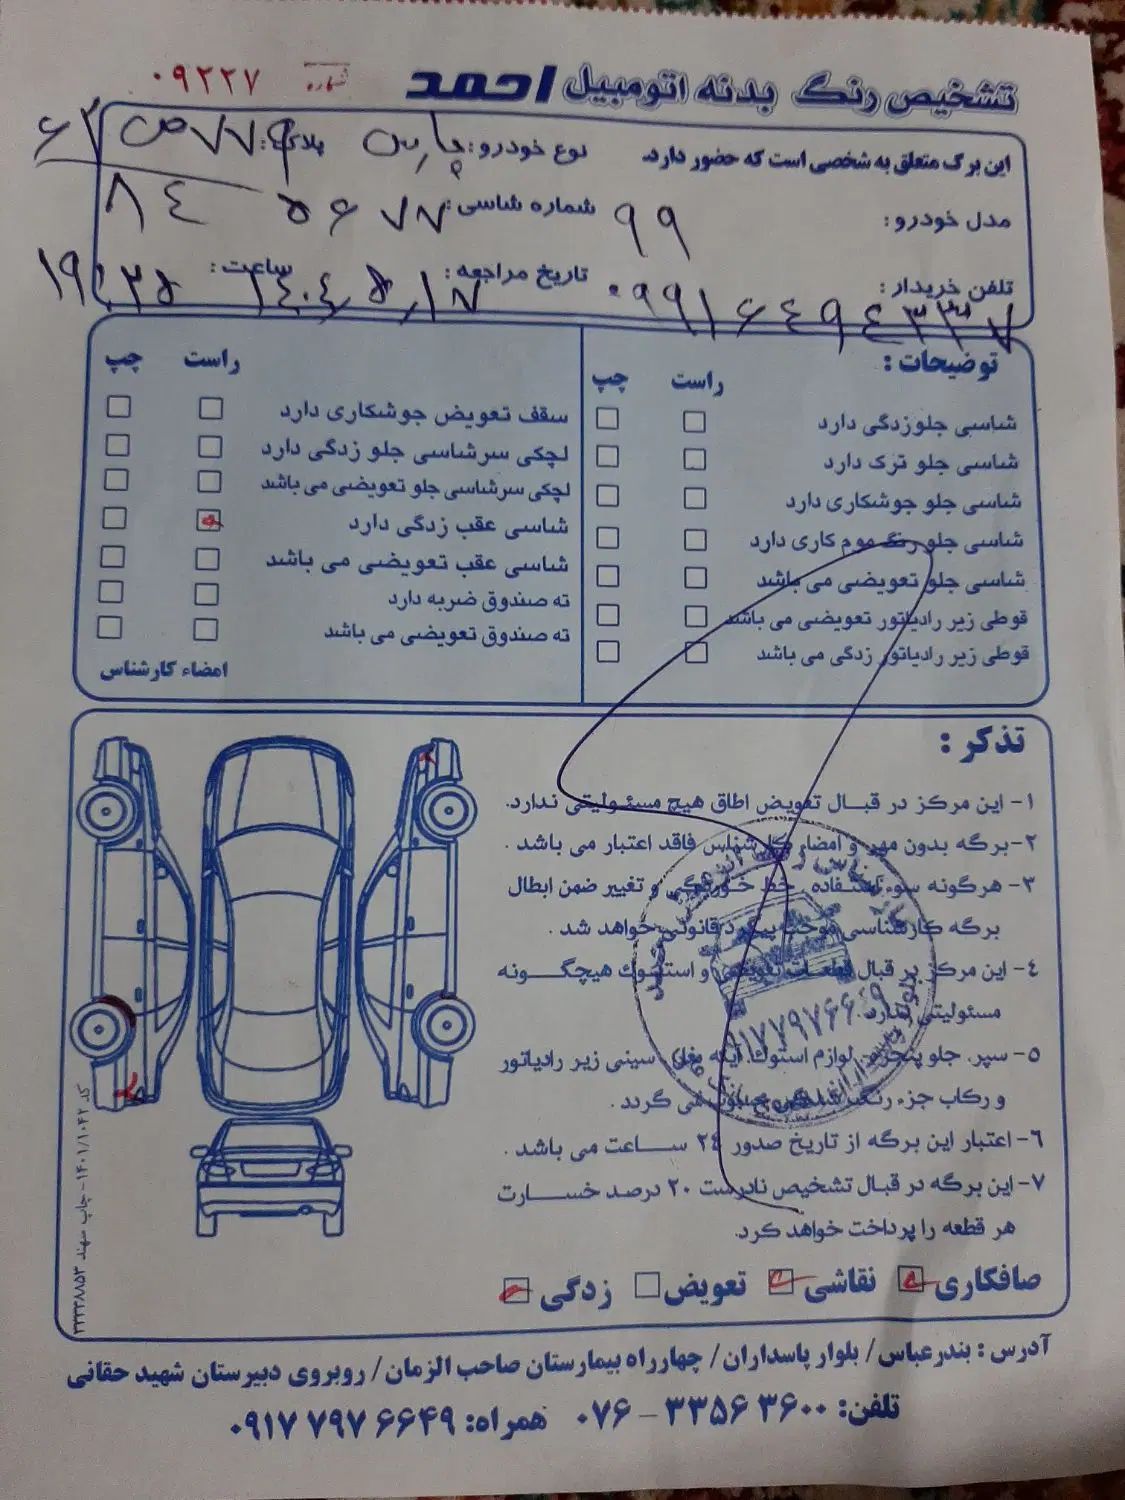 تشخیص رنگ بدنه اتومبیل احمد
شماره ۰۹۲۲۷
این برگ متعلق به شخصی است که حضور دارد.
نوع خودرو: پارس
پلاک:
مدل خودرو: ۹۹
شماره شاسی:
تلفن خریدار: ۰۹۹۱۶۴۹۴۳۳۷
تاریخ مراجعه: ۱۴۰۴,۵,۱۷
ساعت: ۱۹:۳۵
توضیحات:
راست چپ
شاسی جلوزدگی دارد
شاسی جلو ترک دارد
شاسی جلو جوشکاری دارد
شاسی جلو رنگ موم کاری دارد
شاسی جلو تعویضی می باشد
قوطی زیر رادیاتور تعویضی می باشد
قوطی زیر رادیاتور زدگی می باشد
راست چپ
سقف تعویض جوشکاری دارد
لچکی سرشاسی جلو زدگی دارد
لچکی سرشاسی جلو تعویضی می باشد
شاسی عقب زدگی دارد
شاسی عقب تعویضی می باشد
ته صندوق ضربه دارد
ته صندوق تعویضی می باشد
امضاء کارشناس
تذکر:
۱- این مرکز در قبال تعویض اطاق هیچ مسئولیتی ندارد.
۲- برگه بدون مهر و امضاء کارشناس فاقد اعتبار می باشد.
۳- هرگونه سوء استفاده، خط خوردگی و تغییر ضمن ابطال
برگه کارشناسی موجب پیگرد قانونی خواهد شد.
۴- این مرکز در قبال قطعات تعویضی و استوک هیچگونه
مسئولیتی ندارد.
۵- سپر، جلو پنجره، لوازم استوک، آینه بغل، سینی زیر رادیاتور
و رکاب جزء رنگ
می گردد.
۶- اعتبار این برگه از تاریخ صدور ۲۴ ساعت می باشد.
۷- این برگه در قبال تشخیص نادرست ۲۰ درصد خسارت
هر قطعه را پرداخت خواهد کرد.
صافکاری نقاشی تعویض زدگی
کد ۱۴۰۱/۱۰۴۲ - چاپ سهند ۳۲۲۳۸۸۵۳
آدرس: بندرعباس/ بلوار پاسداران/ چهارراه بیمارستان صاحب الزمان/ روبروی دبیرستان شهید حقانی
تلفن: ۳۳۵۶۳۶۰۰ - ۰۷۶ همراه: ۰۹۱۷۷۹۷۶۶۴۹